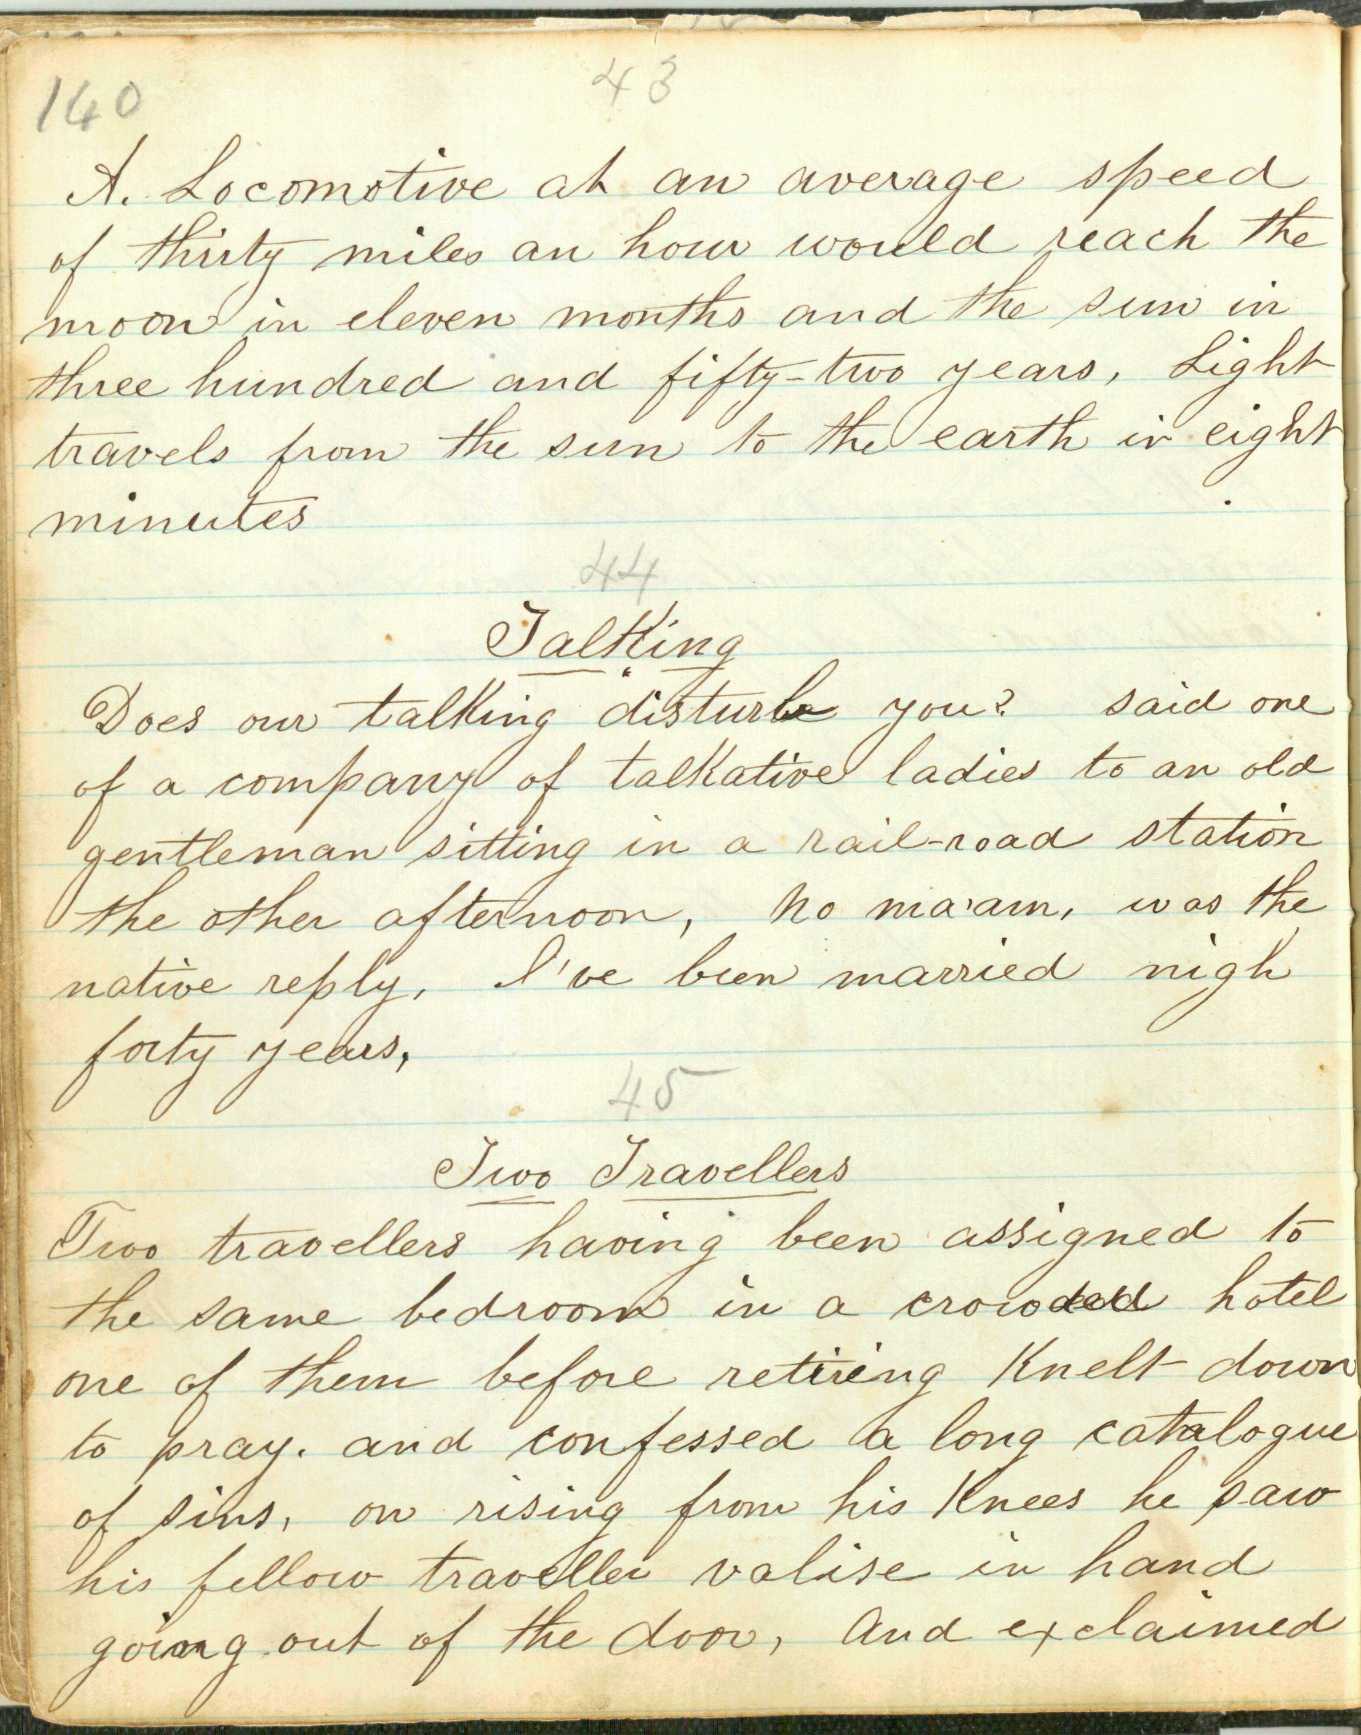 140
43
A. Locomotive at an average speed
of thirty miles an hour would reach the
moon in eleven months and the sun in
three hundred and fifty-two years, Light
travels from the sun to the earth in eight
minutes
44
Talking
Does our talking disturb you? said one
of a company of talkative ladies to an old
gentleman sitting in a rail-road station
the other afternoon, No ma'am, was the
native reply, I've been married nigh
forty years,
45
Two Travellers
Two travellers having been assigned to
the same bedroom in a crowded hotel
one of them before retiring Knelt down
to pray. and confessed a long catalogue
of sins, on rising from his Knees he saw
his fellow traveller valise in hand
going out of the door, and exclaimed